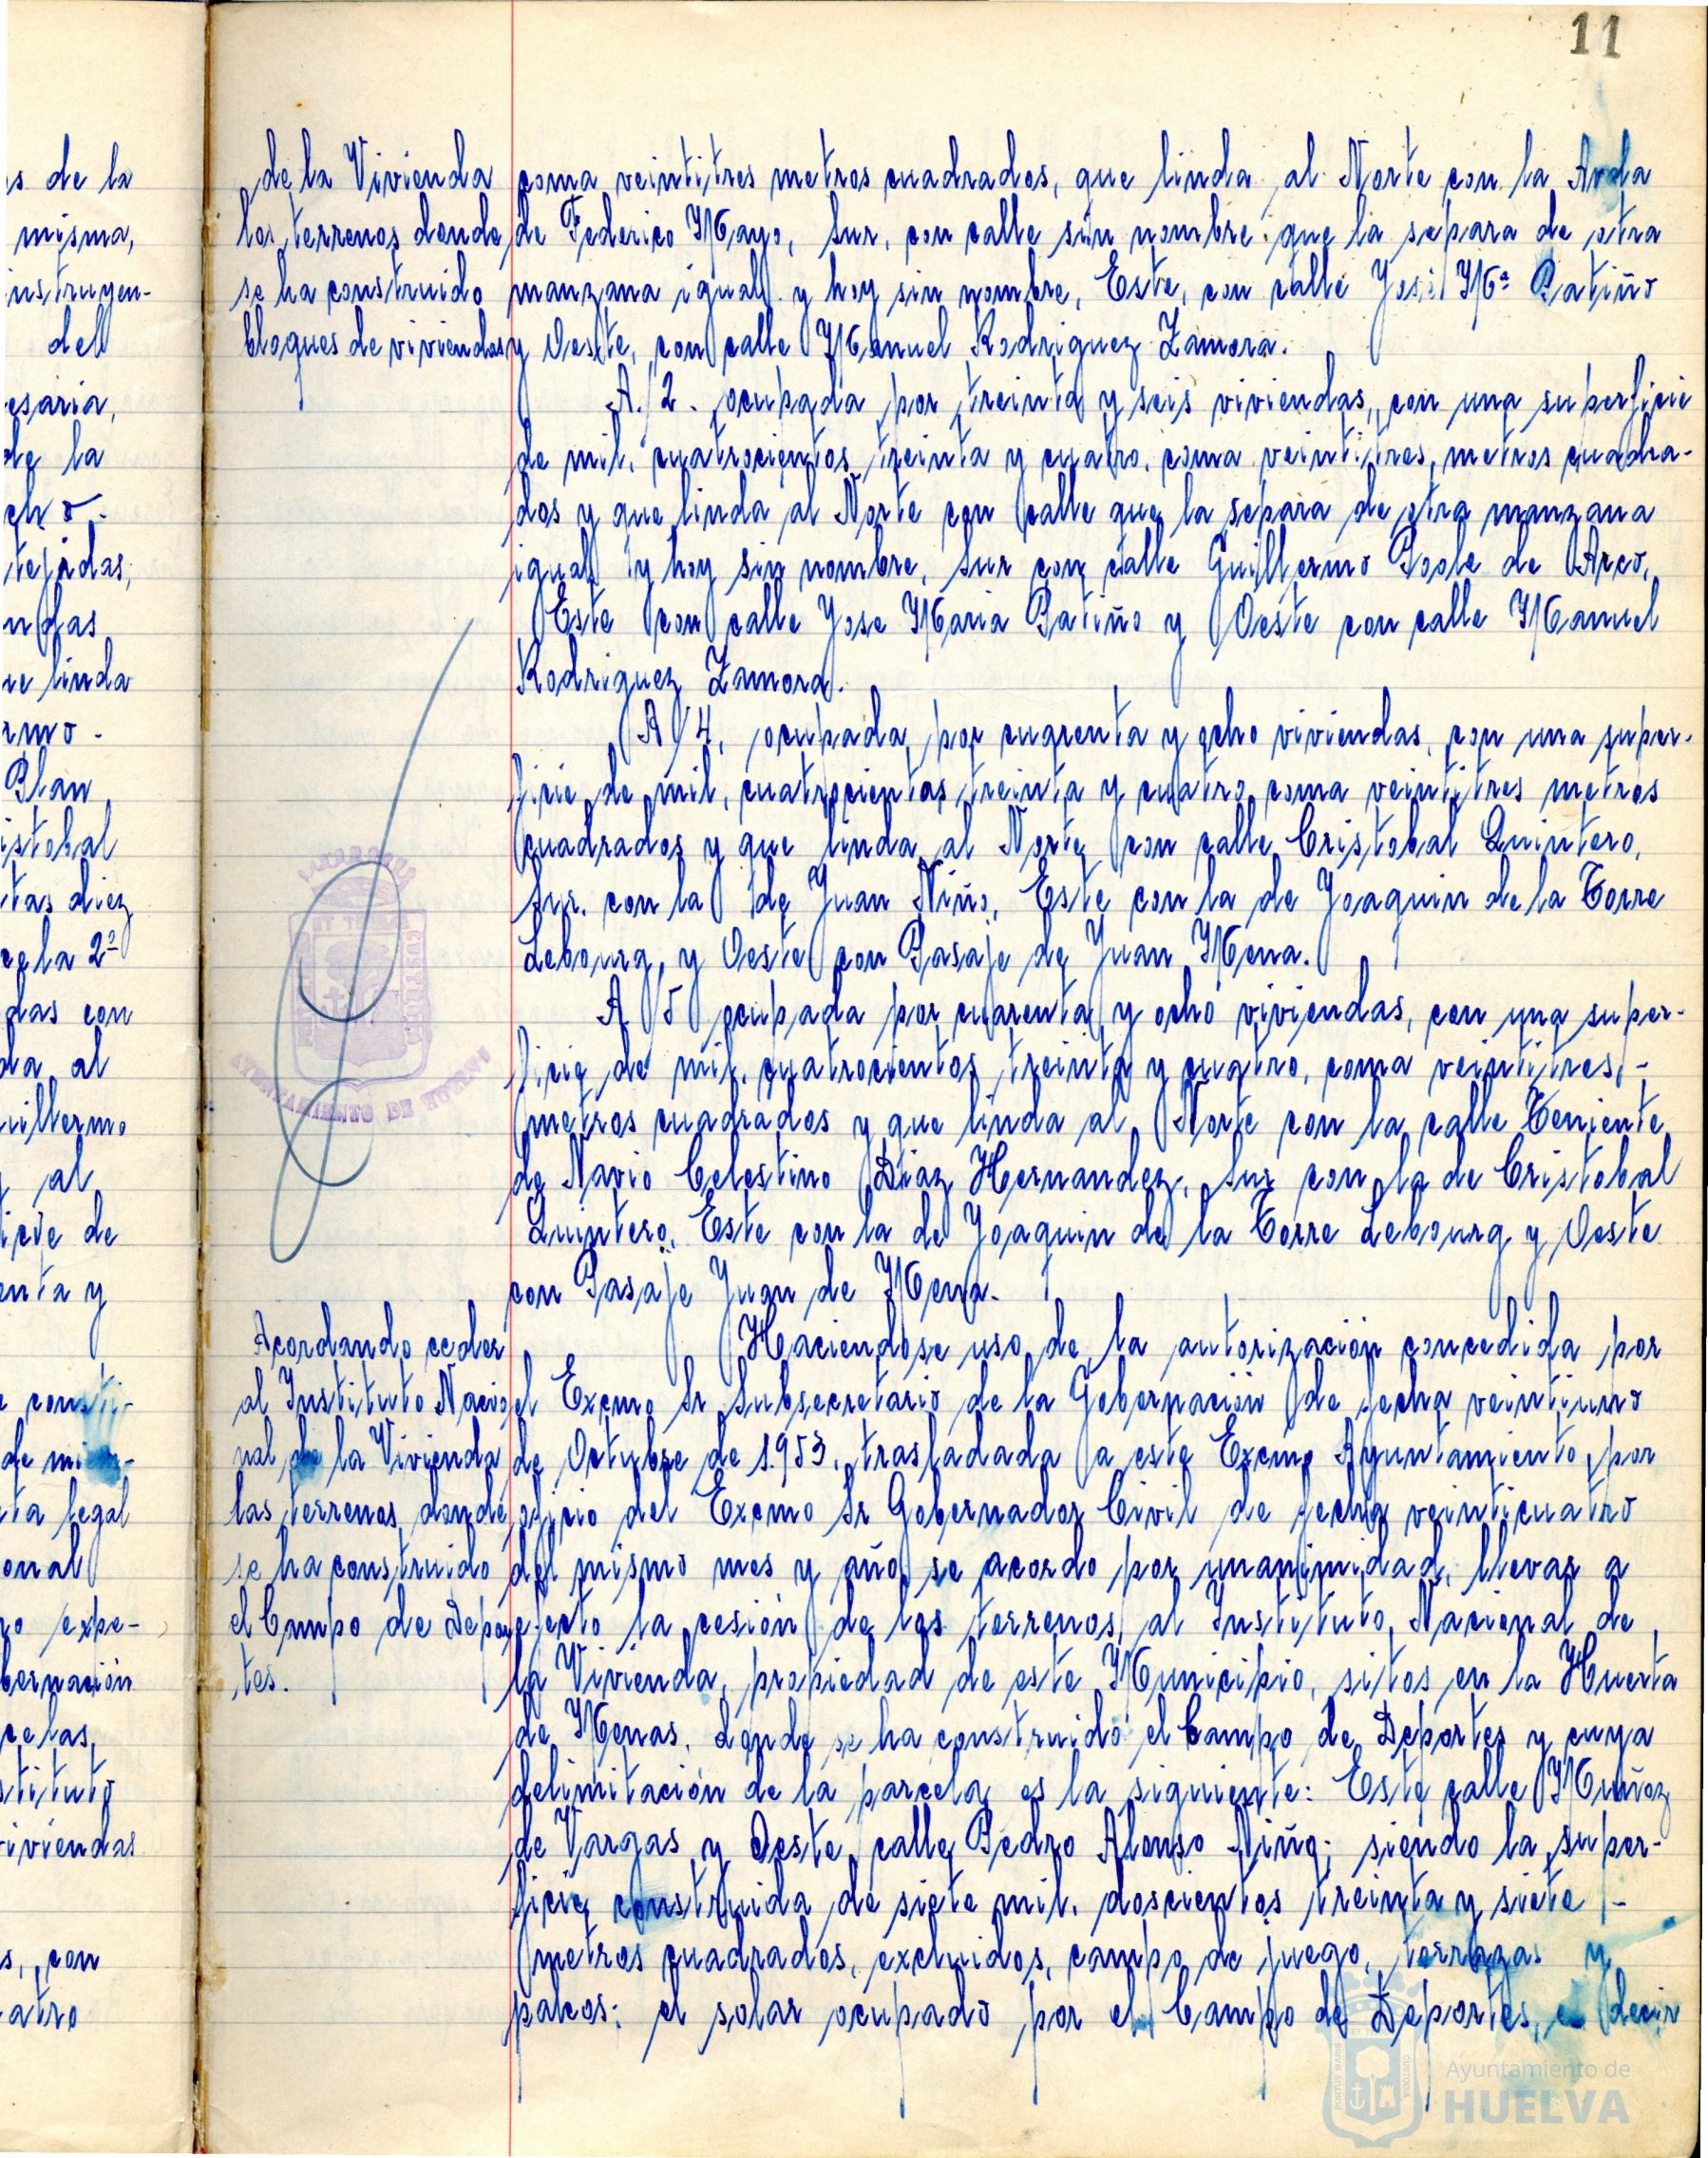 11
de la Vivienda
los terrenos donde
se ha construido
bloques de viviendas
coma veintitres metros cuadrados, que linda al Norte con la Avda
de Federico Mayo, Sur, con calle sin nombre que la separa de otra
manzana igual y hoy sin nombre, Este, con calle José Mª Patiño
y Oeste, con calle Manuel Rodriguez Zamora.
A. 2. ocupada por treinta y seis viviendas, con una superficie
de mil, cuatrocientos treinta y cuatro, coma veintitres, metros cuadra-
dos y que linda al Norte con calle que la separa de otra manzana
igual y hoy sin nombre, Sur con calle Guillermo Poole de Arco,
Este con calle Jose Maria Patiño y Oeste con calle Manuel
Rodriguez Zamora.
A 4, ocupada por cuarenta y ocho viviendas, con una super-
ficie de mil, cuatrocientos treinta y cuatro coma veintitres metros
cuadrados y que linda al Norte con calle Cristobal Quintero,
Sur. con la de Juan Niño, Este con la de Joaquin de la Torre
Lebourg, y Oeste con Pasaje de Juan Mena.
A 5 ocupada por cuarenta y ocho viviendas, con una super-
ficie de mil, cuatrocientos treinta y cuatro, coma veintitres, -
metros cuadrados y que linda al Norte con la calle Teniente
de Navio Celestino Diaz Hernandez, Sur con la de Cristobal
Quintero, Este con la de Joaquin de la Torre Lebourg y Oeste
con Pasaje Juan de Mena.
Acordando ceder
al Instituto Nacio
nal de la Vivienda
las terrenos donde
se ha construido
el Campo de Depor
tes.
Haciendose uso de la autorización concedida por
el Excmo Sr Subsecretario de la Gobernación de fecha veintiuno
de Octubre de 1.953, trasladada a este Excmo Ayuntamiento por
oficio del Excmo Sr Gobernador Civil de fecha veinticuatro
del mismo mes y año se acordo por unanimidad, llevar a
efecto la cesión de los terrenos al Instituto Nacional de
la Vivienda, propiedad de este Municipio, sitos en la Huerta
de Menas, donde se ha construido el Campo de Deportes y cuya
delimitación de la parcela es la siguiente: Este calle Muñoz
de Vargas y Oeste calle Pedro Alonso Niño; siendo la super-
ficie construida de siete mil, doscientos treinta y siete -
metros cuadrados, excluidos, campo de juego, terrazas y
palcos: el solar ocupado por el Campo de Deportes, es decir
AYUNTAMIENTO DE HUELVA
s de la
misma,
instruyen-
del
esaria,
de la
cho.
tejidas,
ndas
ue linda
rmo -
Plan
istobal
tas diez
cela 2ª
das con
da al
uillermo
al
icie de
enta y
e consti-
ta legal
onal
expe-
bernación
celas,
stituto
viviendas
s, con
atro
Ayuntamiento de
HUELVA